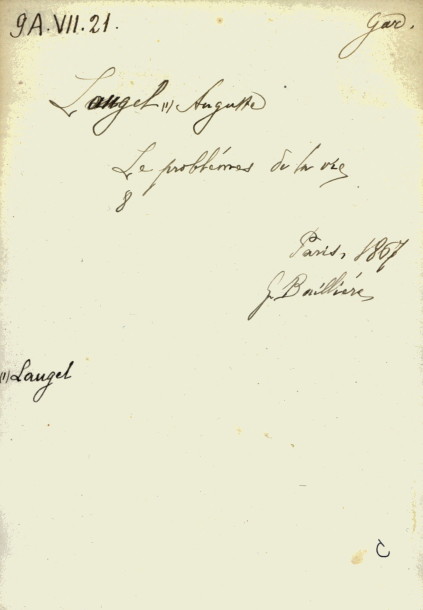 9A.VII.21.
Gar.
Laugel (1) Auguste
Le problémes de la vie
8
Paris, 1867
G. Baillière
(1) Laugel
C